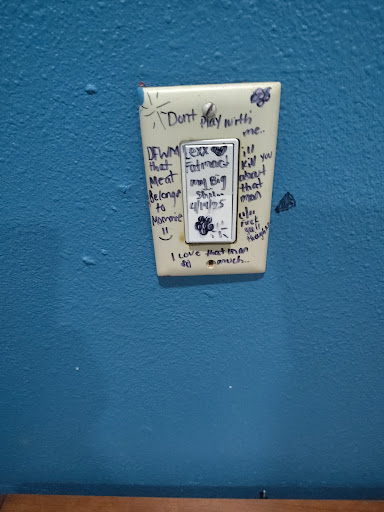 Dont play with
me..
DFWM
that
meat
Belongs
to
Mommie
!!
Lexx
Fatmact
my Big
shii..
4/14/25
i'll
kill you
about
that
man
fuck
yall
thoughts
I love that man
so much..